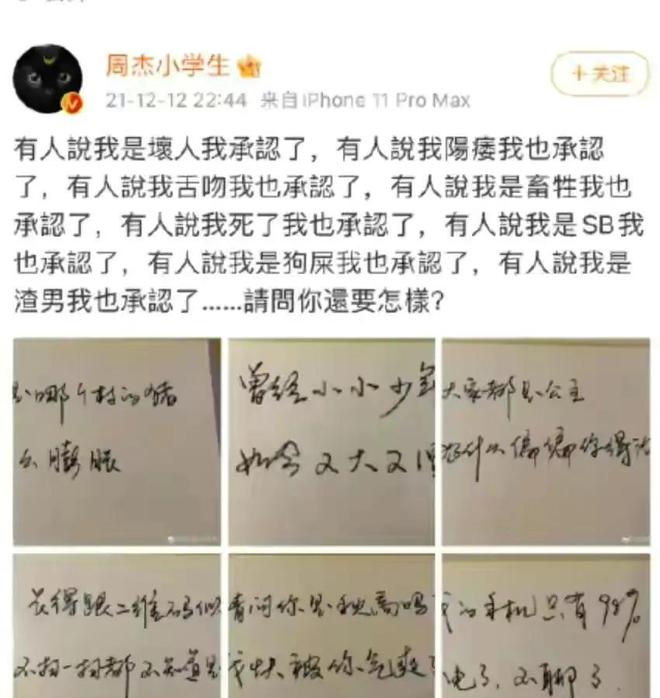 周杰小学生
+关注
21-12-12 22:44 来自iPhone 11 Pro Max
有人說我是壞人我承認了，有人說我陽痿我也承認
了，有人說我舌吻我也承認了，有人說我是畜牲我也
承認了，有人說我死了我也承認了，有人說我是SB我
也承認了，有人說我是狗屎我也承認了，有人說我是
渣男我也承認了......請問你還要怎樣？
是哪个村的猪
么膨胀
曾经小小少年
如今又大又
大家都是公主
为什么偏偏你得
长得跟二维码似
不扫一扫都不知道是
请问你是秋高吗
我快被你气爽
的手机只有98%
电了，不聊了